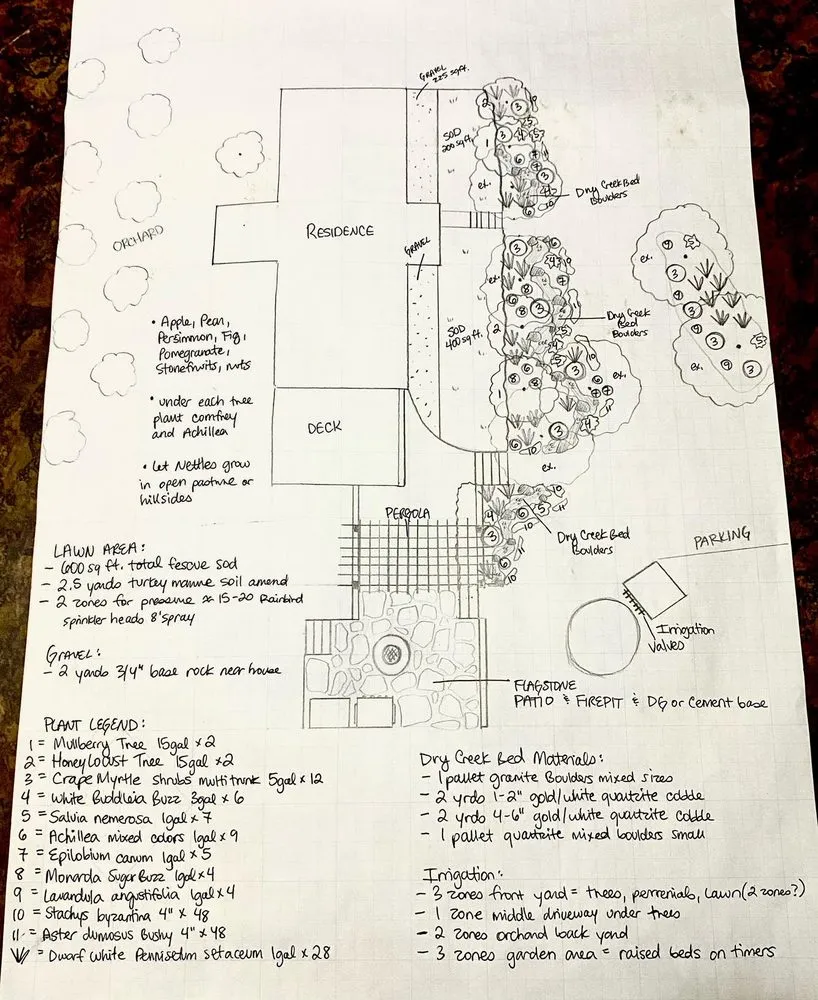 GRAVEL
225 sqft.
SOD
200 sqft.
ex.
Dry Creek Bed
Boulders
ORCHARD
RESIDENCE
GRAVEL
ex.
ex.
Dry Creek
Bed
Boulders
SOD
400 sqft.
• Apple, Pear,
Persimmon, Fig,
Pomegranate,
Stonefruits, nuts
ex.
ex.
• under each tree
plant comfrey
and Achillea
DECK
• Let Nettles grow
in open pasture or
hillsides
ex.
PERGOLA
Dry Creek Bed
Boulders
PARKING
LAWN AREA:
- 600 sq ft. total fescue sod
- 2.5 yards turkey manure soil amend
- 2 zones for pressure 15-20 Rainbird
sprinkler heads 8' spray
Irrigation
Valves
GRAVEL:
- 2 yards 3/4" base rock near house
FLAGSTONE
PATIO & FIREPIT & DG or Cement base
PLANT LEGEND:
1 = Mullberry Tree 15gal x 2
2 = Honey Locust Tree 15gal x 2
3 = Crape Myrtle shrubs multitrunk 5gal x 12
4 = White Buddleia Buzz 3gal x 6
5 = Salvia nemerosa 1gal x 7
6 = Achillea mixed colors 1gal x 9
7 = Epilobium canum 1gal x 5
8 = Monarda Sugar Buzz 1gal x 4
9 = Lavandula angustifolia 1gal x 4
10 = Stachys byzantina 4" x 48
11 = Aster dumosus Bushy 4" x 48
= Dwarf White Pennisetum setaceum 1gal x 28
Dry Creek Bed Materials:
- 1 pallet granite Boulders mixed sizes
- 2 yrds 1-2" gold/white quartzite cobble
- 2 yrds 4-6" gold/white quartzite cobble
- 1 pallet quartzite mixed boulders small
Irrigation:
- 3 zones front yard = trees, perrenials, lawn (2 zones?)
- 1 zone middle driveway under trees
- 2 zones orchard back yard
- 3 zones garden area = raised beds on timers